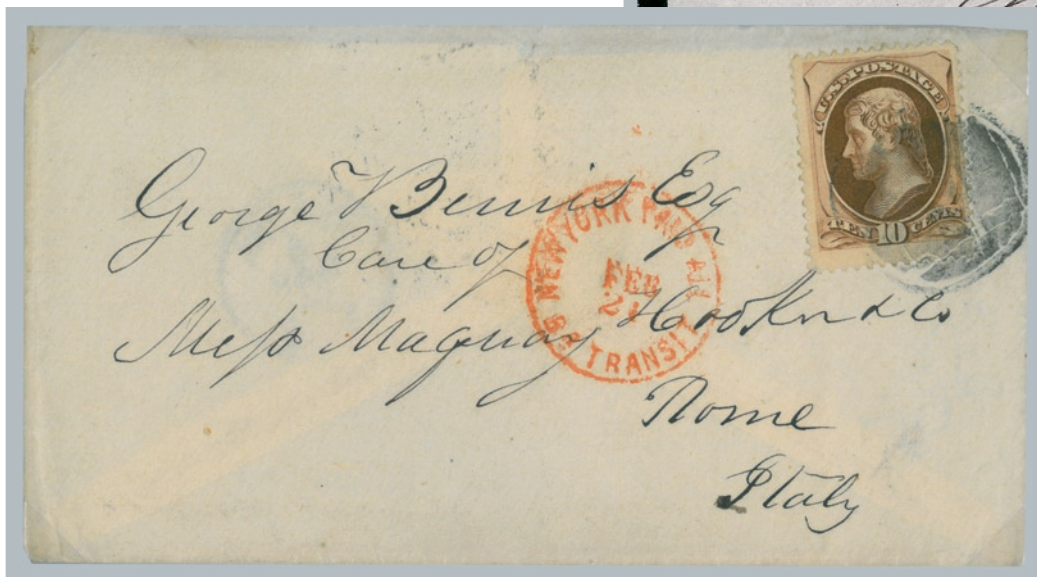 U.S. POSTAGE
TEN 10 CENTS
George Bemis Esq
Care of
Mess Maquay Hooker & Co
Rome
Italy
NEW YORK PAID ALL
FEB
21
TRANSIT